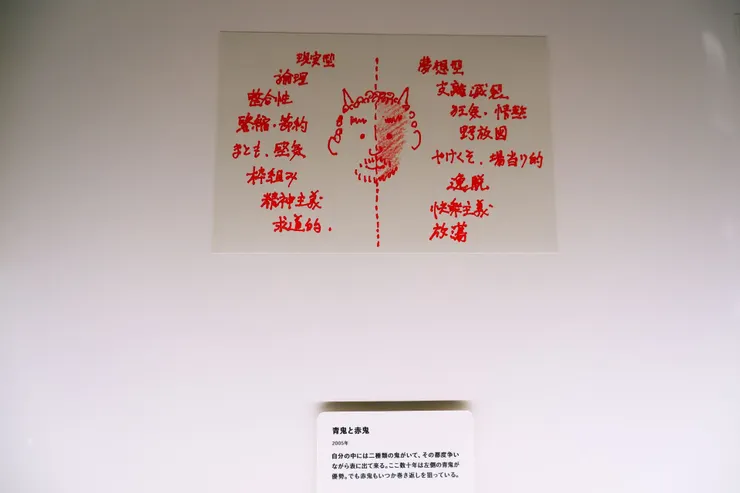 現実型
論理
整合性
緊縮・節約
まとも、
枠組み
精神主義
求道的.
夢想型
支離滅裂
狂気・
野放図
やけくそ、場当り的
逸脱
快楽主義
放蕩
青鬼と赤鬼
2005年
自分の中には二種類の鬼がいて、その都度争い
ながら表に出て来る。ここ数十年は左側の青鬼が
優勢。でも赤鬼もいつか巻き返しを狙っている。